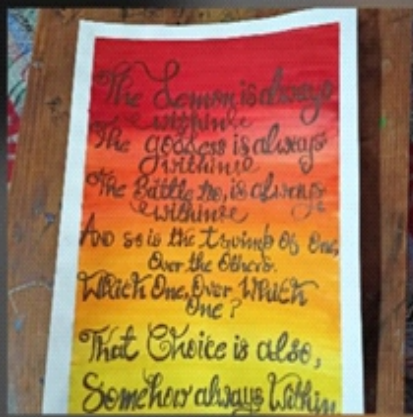 The Lemon is always
within me
The goddess is always
within me
The Battle too, is always
within me
And so is the triumph Of One,
Over the Others.
Which One, Over Which
One?
That Choice is also,
Somehow always Within